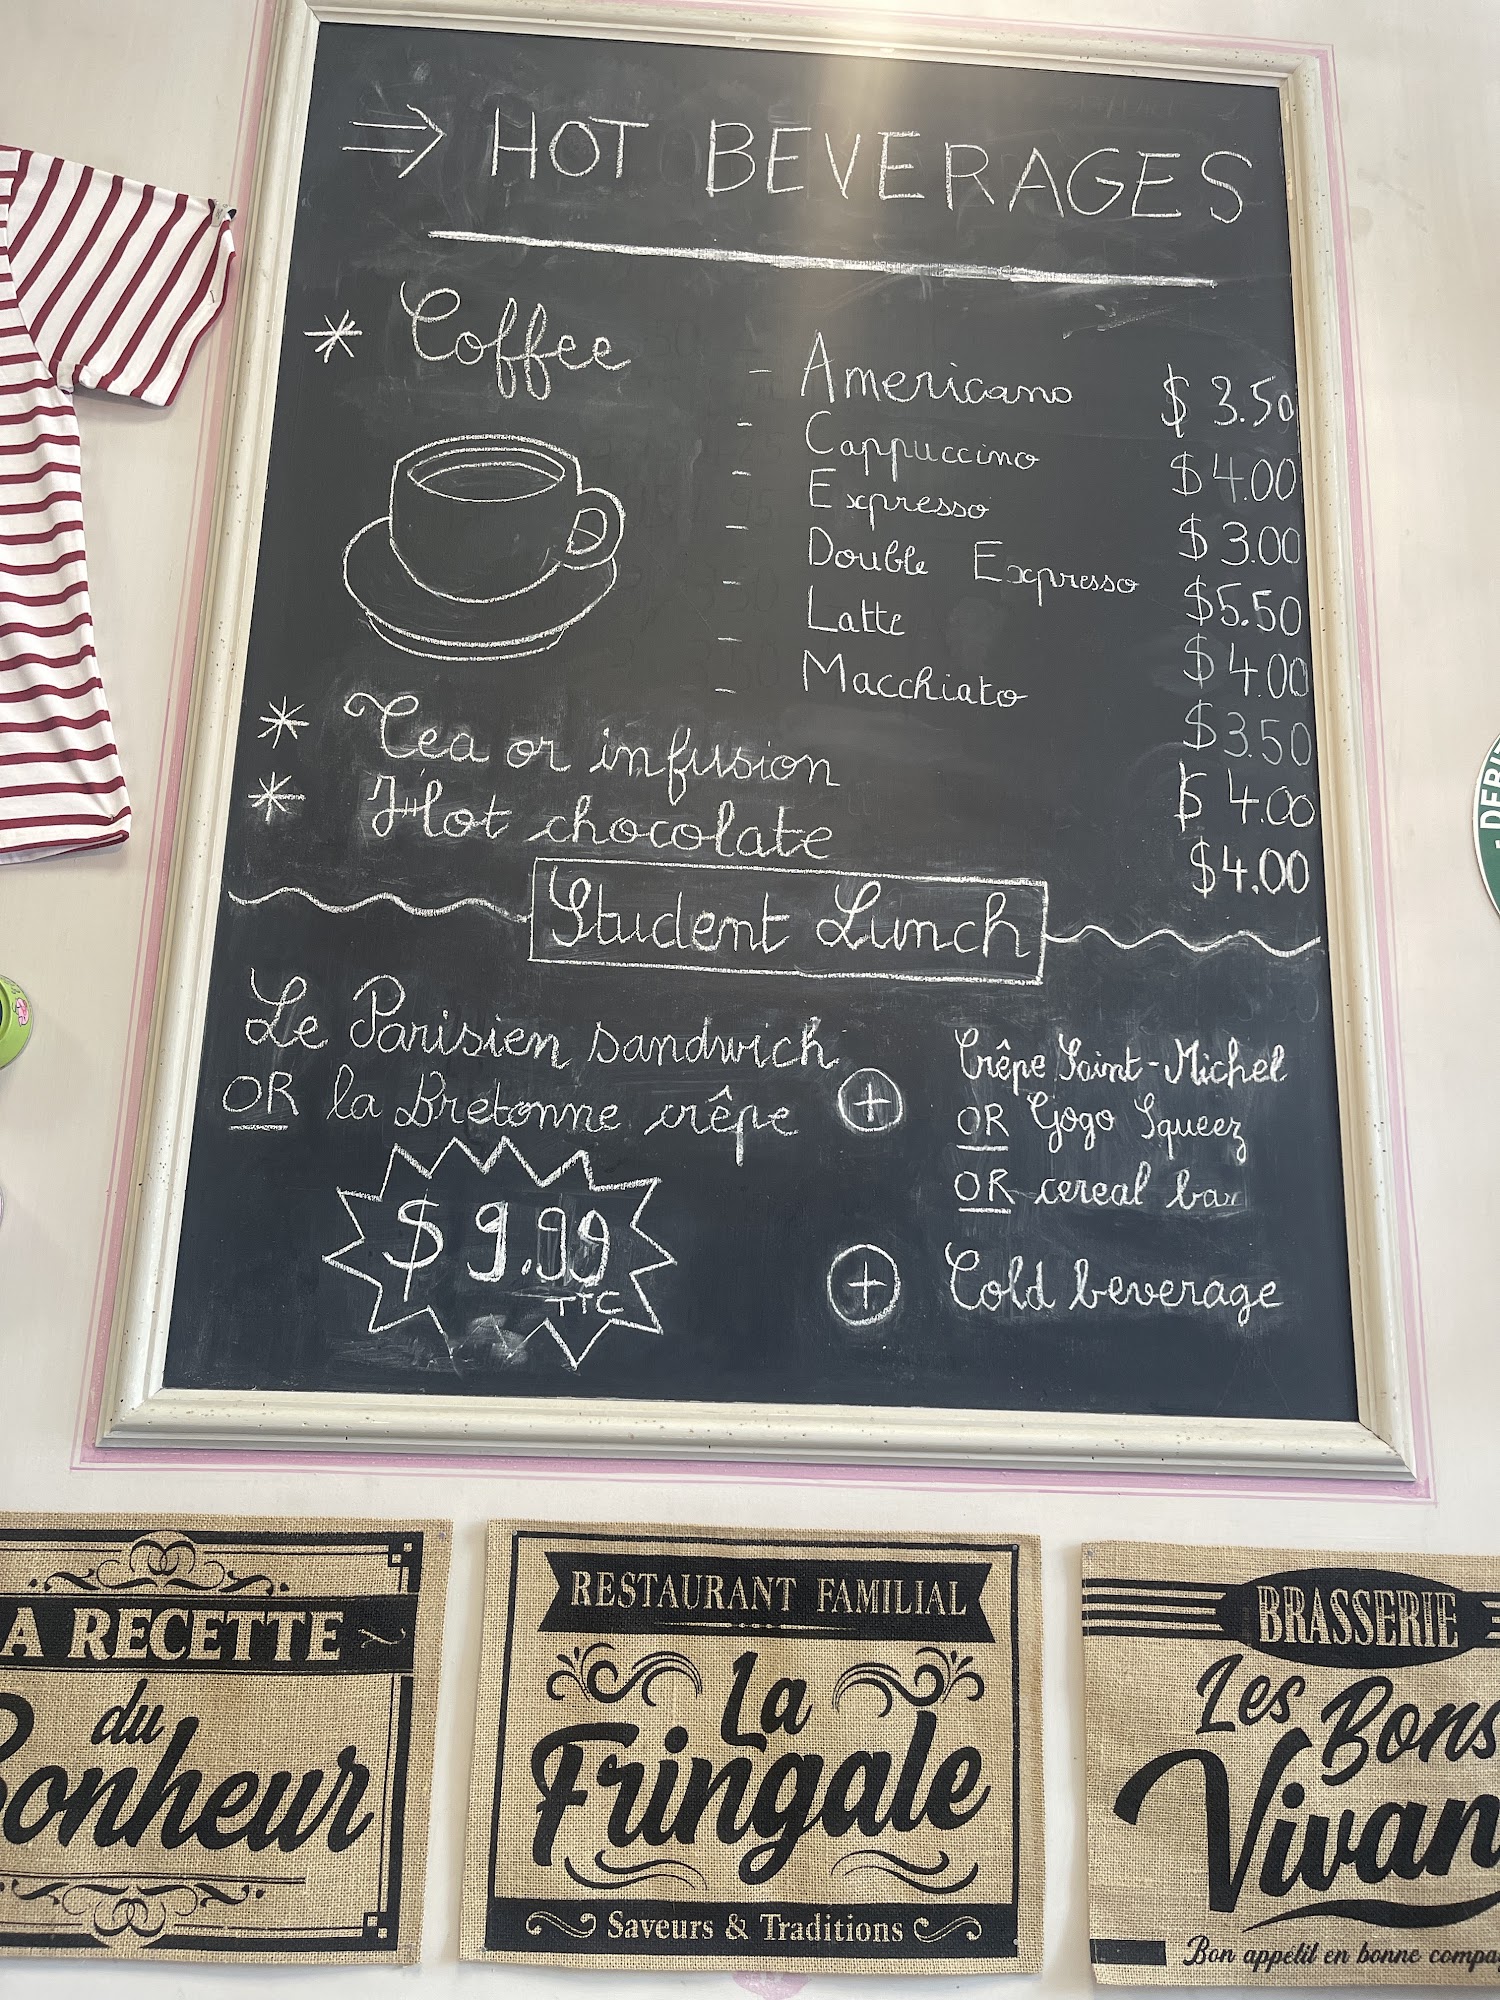 ⇒ HOT BEVERAGES
* Coffee
- Americano $ 3.50
- Cappuccino $ 4.00
- Expresso $ 3.00
- Double Expresso $5.50
- Latte $ 4.00
- Macchiato $3.50
* Tea or infusion $ 4.00
* Hot chocolate $4.00
Student Lunch
Le Parisien sandwich
OR la Bretonne crêpe
$ 9.99
TTC
+ Crêpe Saint-Michel
OR Gogo Squeez
OR cereal bar
+ Cold beverage
A RECETTE
du
Bonheur
RESTAURANT FAMILIAL
La
Fringale
Saveurs & Traditions
BRASSERIE
Les Bons
Vivan
Bon appetit en bonne compa